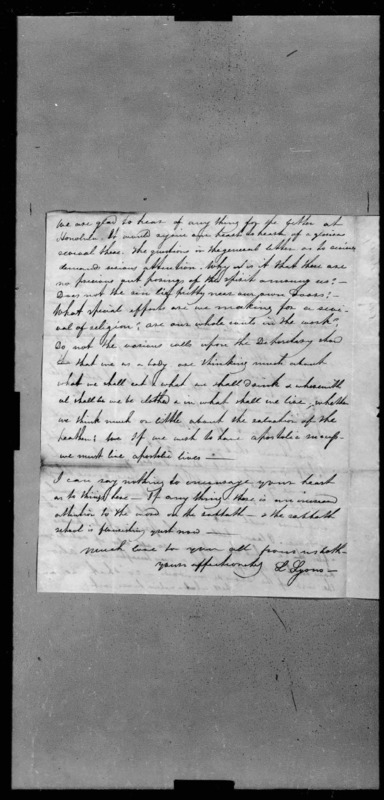 We are glad to hear of any thing for the better at
Honolulu. It would rejoice our hearts to hear of a glorious
revival there. The questions in the general letter as to reviv
demand serious attention. Why is it that there are
no precious out pourings of the spirit among us? —
Does not the sin lie pretty near our own doors? —
What special efforts are we making for a revi-
val of religion, are our whole souls in the work,
Do not the various calls upon the Depository show
that we as a body are thinking much about
what we shall eat & what we shall drink & wherewith
al shall we be clothed & in what shall we live, whether
we think much or little about the salvation of the
heathen; If we wish to have apostolic success
we must live apostolic lives —
I can say nothing to encourage your heart
as to things here — If any thing there is an increased
attention to the word on the sabbath — & the sabbath
school is flourishing just now —
Much love to you all from us both —
yours affectionately L. Lyons —